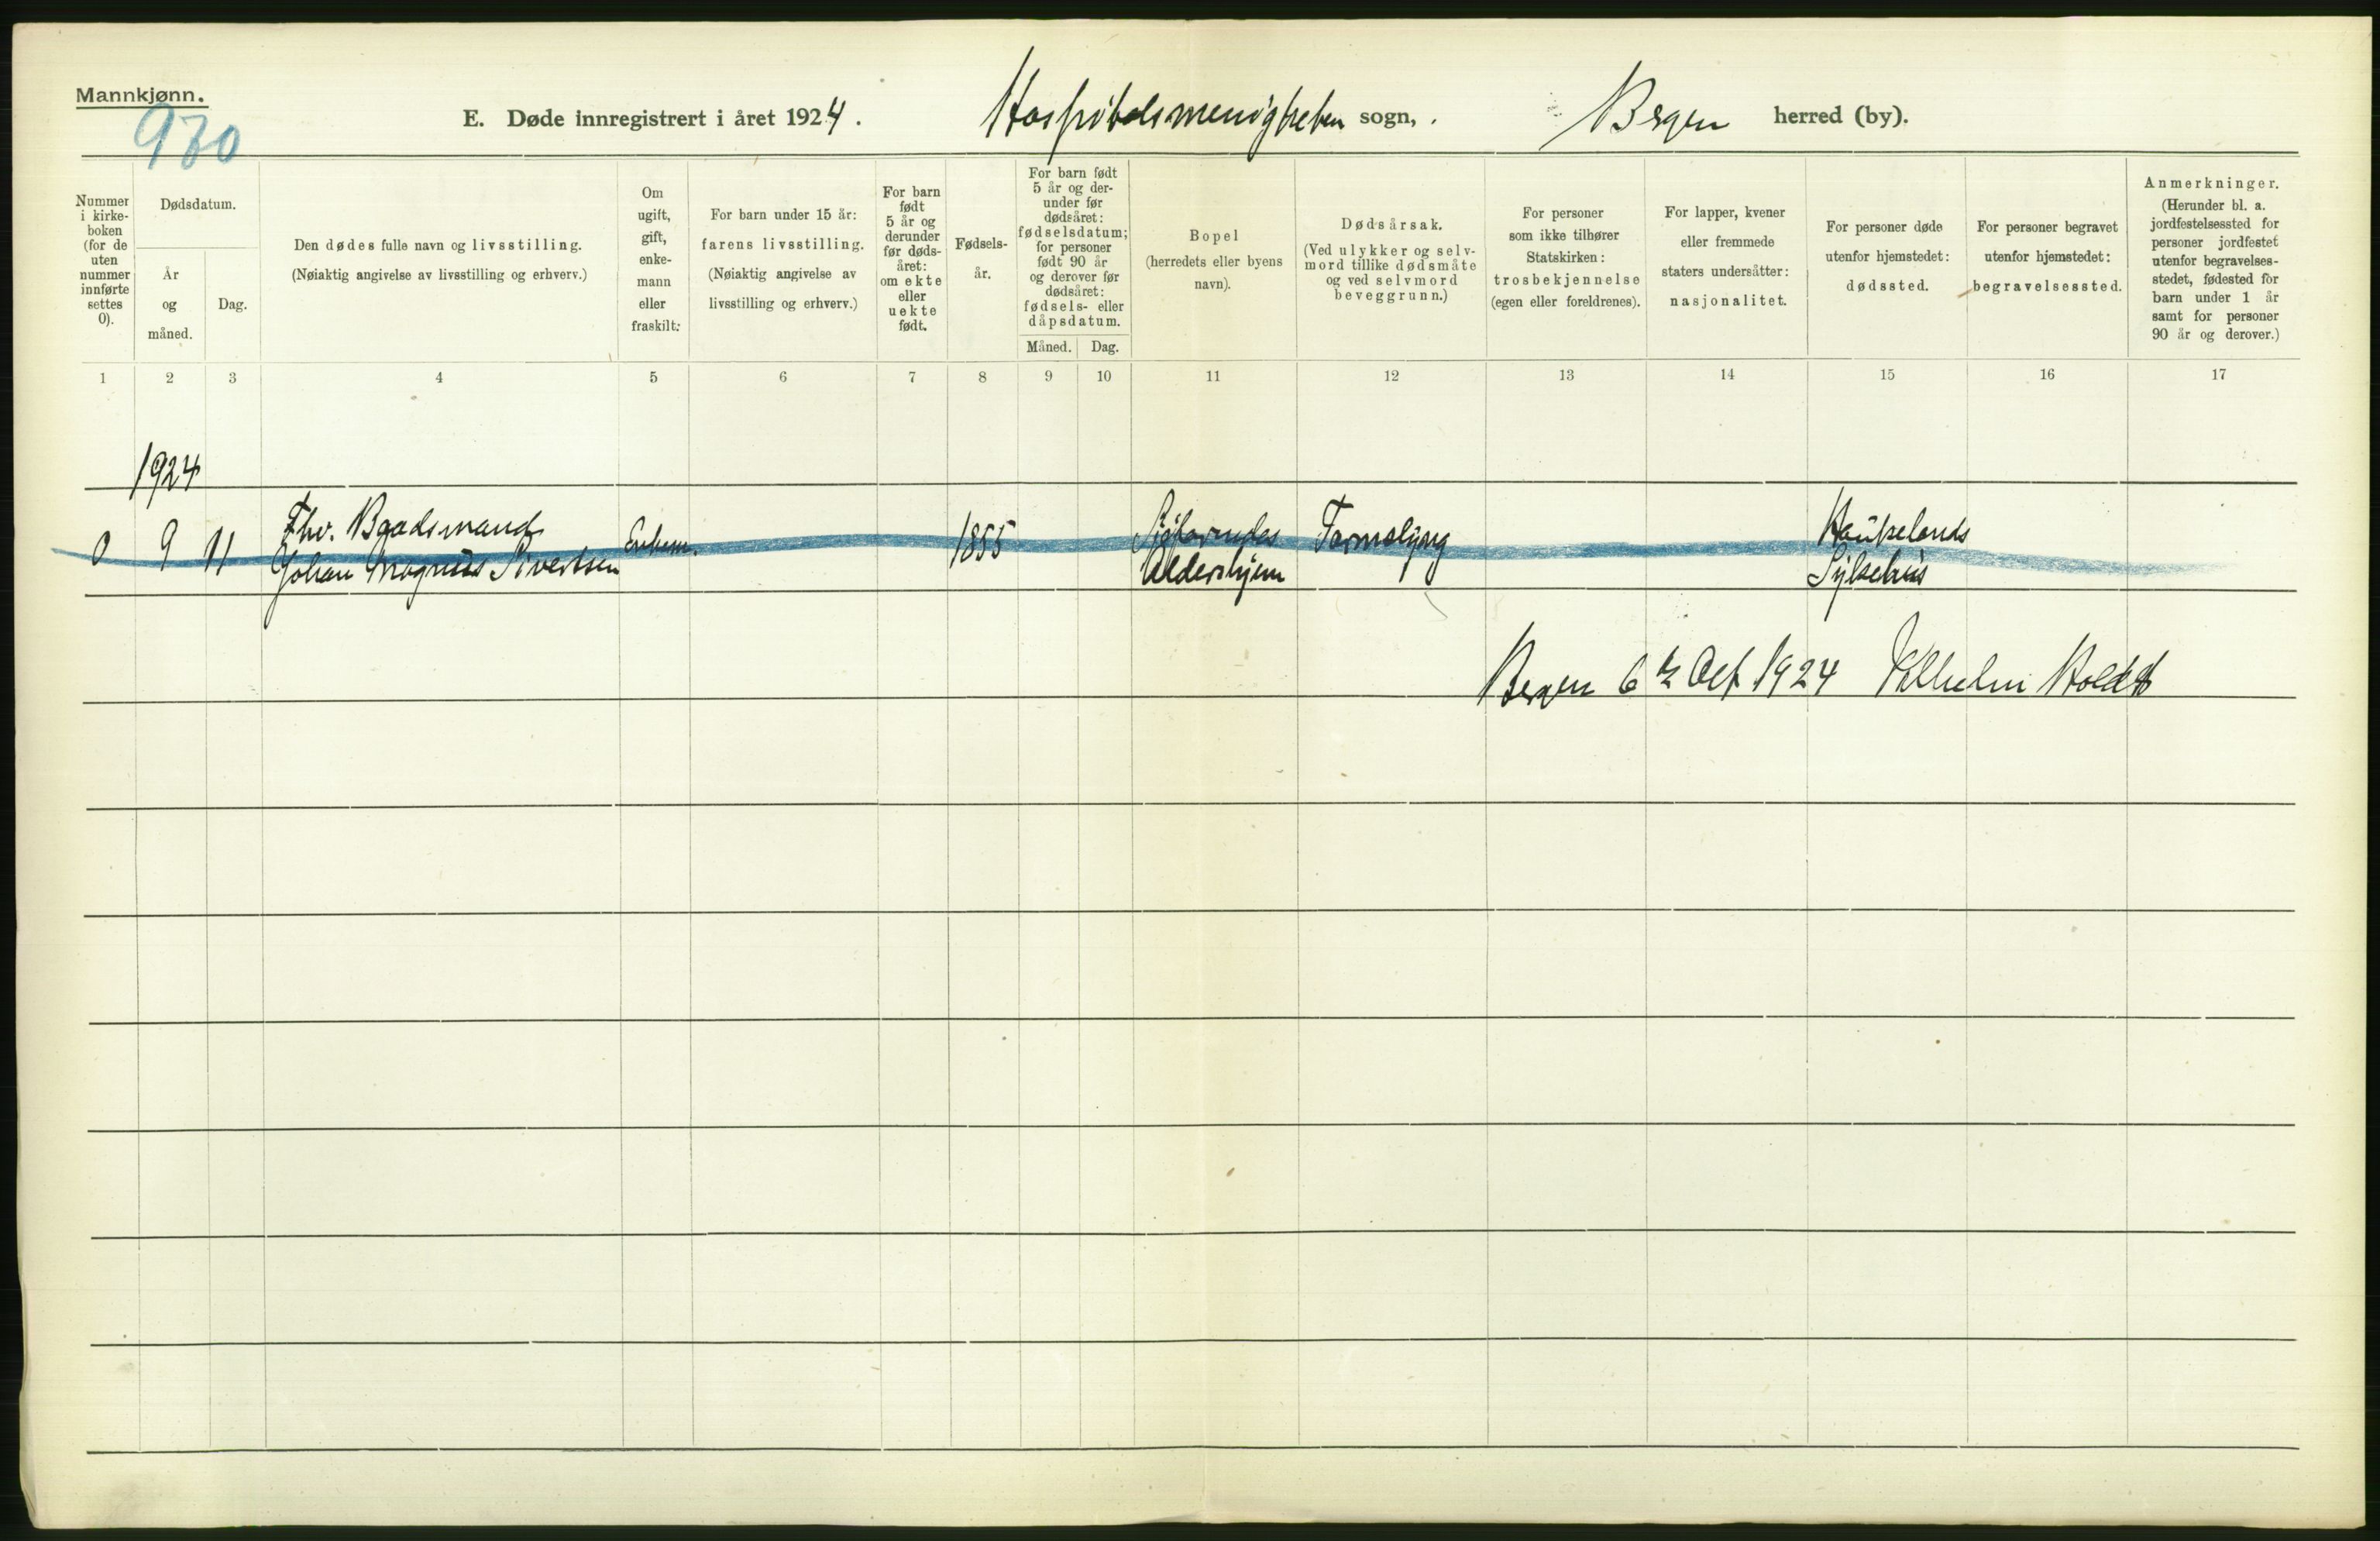 Mannkjønn.
930
E. Døde innregistrert i året 1924. Hospitalsmenigheten sogn, . Bergen herred (by).
Nummer i kirkeboken (for de uten nummer innførte settes 0).
Dødsdatum.
År og måned.
Dag.
Den dødes fulle navn og livsstilling.
(Nøiaktig angivelse av livsstilling og erhverv.)
Om ugift, gift, enkemann eller fraskilt.
For barn under 15 år:
farens livsstilling.
(Nøiaktig angivelse av livsstilling og erhverv.)
For barn født 5 år og derunder før dødsåret: om ekte eller uekte født.
Fødselsår.
For barn født 5 år og derunder før dødsåret: fødselsdatum; for personer født 90 år og derover før dødsåret: fødsels- eller dåpsdatum.
Måned. Dag.
Bopel
(herredets eller byens navn).
Dødsårsak.
(Ved ulykker og selvmord tillike dødsmåte og ved selvmord beveggrunn.)
For personer som ikke tilhører Statskirken: trosbekjennelse (egen eller foreldrenes).
For lapper, kvener eller fremmede staters undersåtter: nasjonalitet.
For personer døde utenfor hjemstedet: dødssted.
For personer begravet utenfor hjemstedet: begravelsessted.
Anmerkninger.
(Herunder bl. a. jordfestelsessted for personer jordfestet utenfor begravelsesstedet, fødested for barn under 1 år samt for personer 90 år og derover.)
1 2 3 4 5 6 7 8 9 10 11 12 13 14 15 16 17
1924
0 9 11 Fhv. Baadsmand Enkem. 1855 Sjøfarendes Tarmslyng Haukelands
Johan Magnus Sivertsen Aldershjem Sykehus
Bergen 6te Oct 1924 Vilhelm Holdt